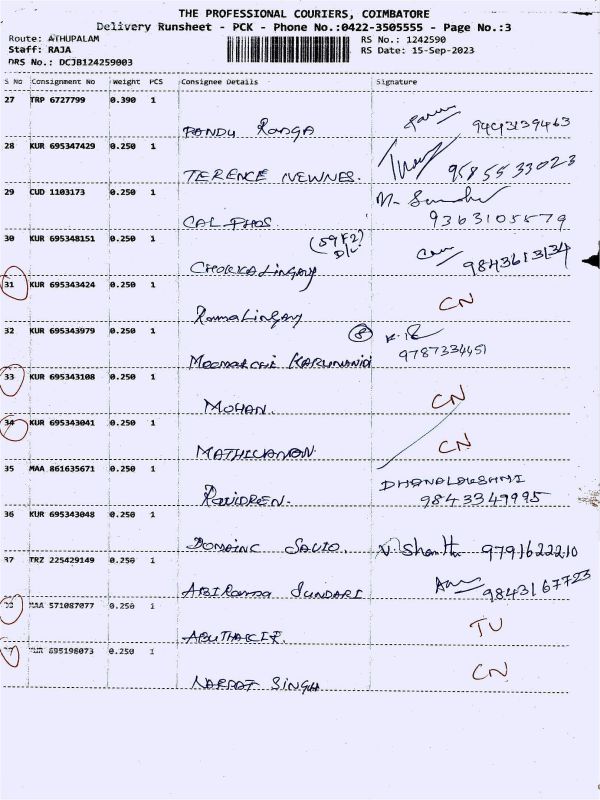 THE PROFESSIONAL COURIERS, COIMBATORE
Delivery Runsheet - PCK - Phone No.:0422-3505555 - Page No.:3
Route: ATHUPALAM RS No.: 1242590
Staff: RAJA RS Date: 15-Sep-2023
DRS No.: DCJB124259003
S No Consignment No Weight PCS Consignee Details Signature
27 TRP 6727799 0.390 1
PANDU Ranga 9443139463
28 KUR 695347429 0.250 1
TERENCE NEWNES. 9585533023
29 CUD 1103173 0.250 1
CAL PHOS 9363105579
30 KUR 695348151 0.250 1
(59F2)
D/L
CHOKKALINGAM 9843613134
31 KUR 695343424 0.250 1
RamaLINGAM CN
32 KUR 695343979 0.250 1
(8)
MEENAKCHI KARUNANIDI 9787334451
33 KUR 695343108 0.250 1
MOHAN. CN
34 KUR 695343041 0.250 1
MATHIVANAN CN
35 MAA 861635671 0.250 1
DHANALAKSHMI
RAVIDREN. 9843349995
36 KUR 695343048 0.250 1
DOMAINC SAVIO. V. Shanthi 9791622210
37 TRZ 225429149 0.250 1
ABIRAMA SUNDARI 9843167723
38 MAA 571087077 0.250 1
ABUTHAKIR. TU
695198073 0.250 1
NARPAT SINGH CN